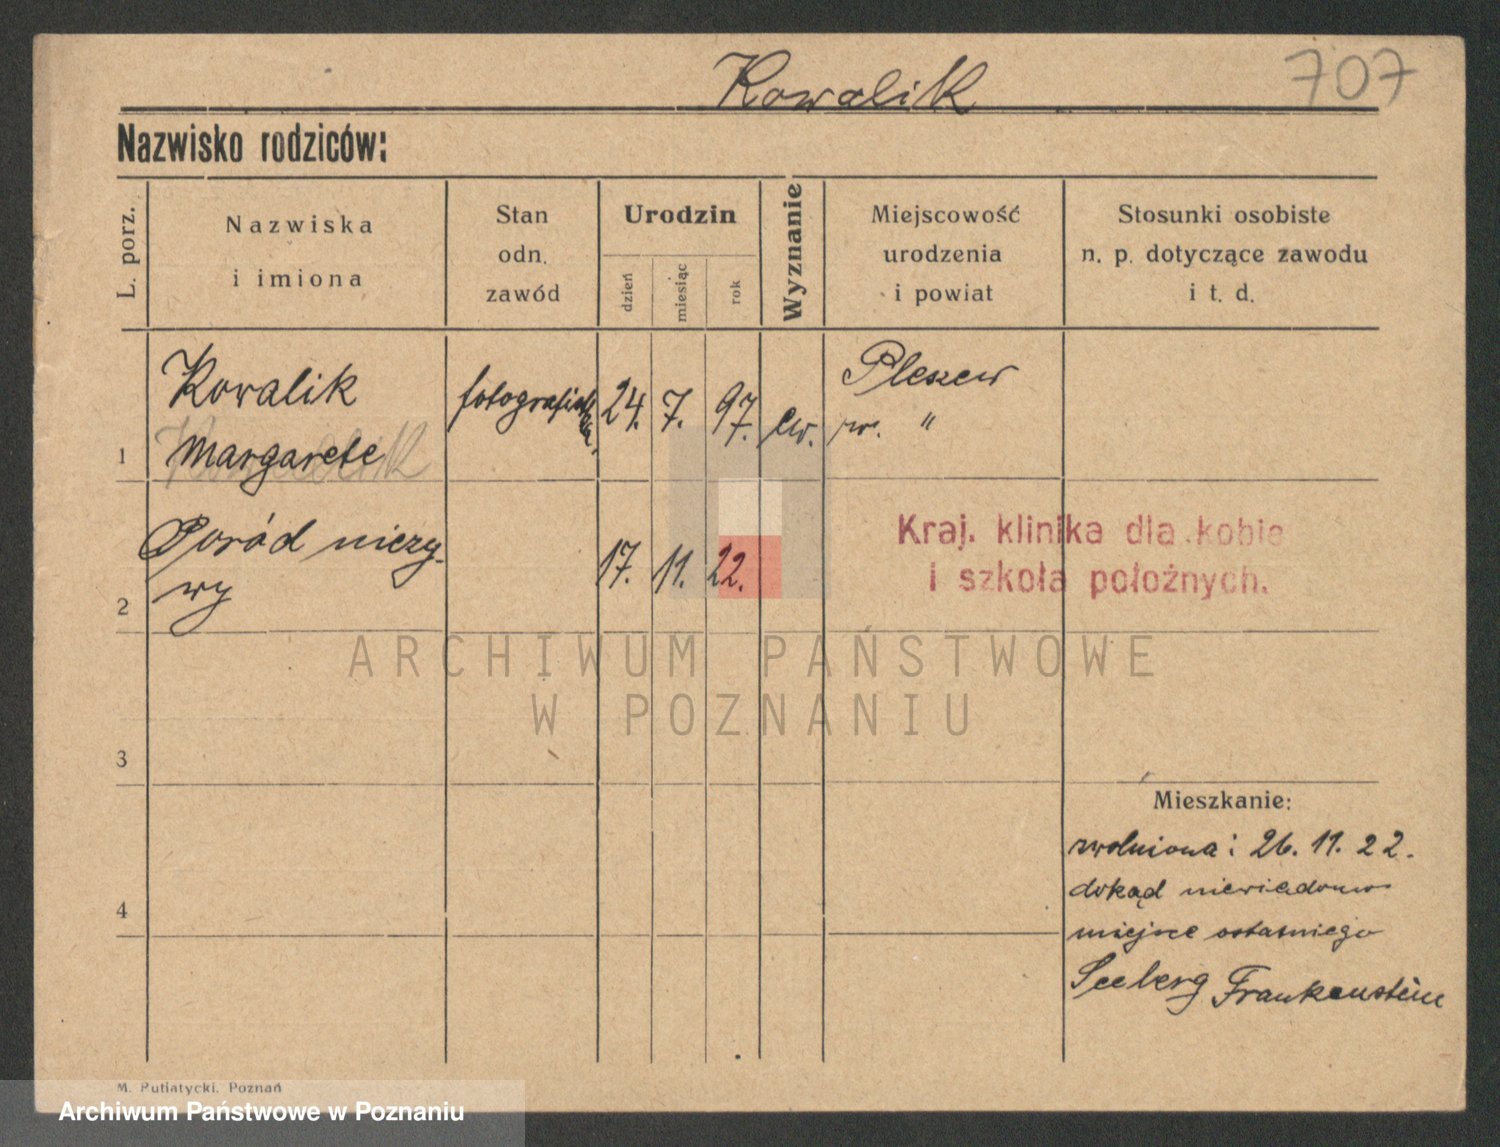 Kowalik
707
Nazwisko rodziców:
L. porz.
Nazwiska
i imiona
Stan
odn.
zawód
Urodzin
dzień
miesiąc
rok
Wyznanie
Miejscowość
urodzenia
i powiat
Stosunki osobiste
n. p. dotyczące zawodu
i t. d.
1
Kowalik
Margarete
Kowalik
24. 7. 97. ew.
Pleszew
pw. "
2
Poród nieży-
wy
17. 11. 22.
Kraj. klinika dla kobie
i szkoła położnych.
ARCHIWUM PAŃSTWOWE
W POZNANIU
3
Mieszkanie:
zwolniona: 26. 11. 22.
dokąd niewiadomo
miejsce ostatniego
Seeberg Frankenstein
4
M. Putiatycki. Poznań
Archiwum Państwowe w Poznaniu